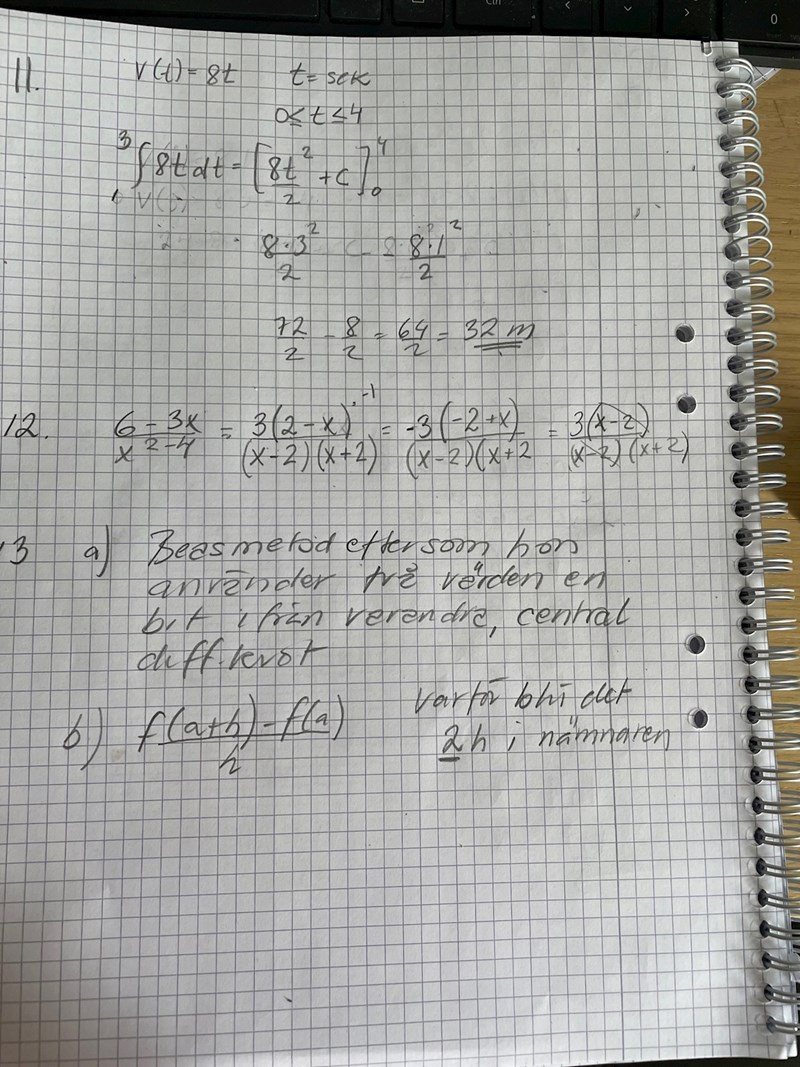 11. v(t) = 8t t = sek
0 ≤ t ≤ 4
3 ∫ 8t dt = [8t²/2 + c] 4 0
1 v(t)
8·3²/2 - 8·1²/2
72/2 - 8/2 = 64/2 = 32 m
12. 6-3x/x²-4 = 3(2-x)·-1/(x-2)(x+2) = -3(-2+x)/(x-2)(x+2 = 3(x-2)/(x-2)(x+2)
13 a) Beas metod eftersom hon
använder två värden en
bit ifrån varandra, central
diff.kvot
b) f(a+h)-f(a)/h varför blir det
2h i nämnaren